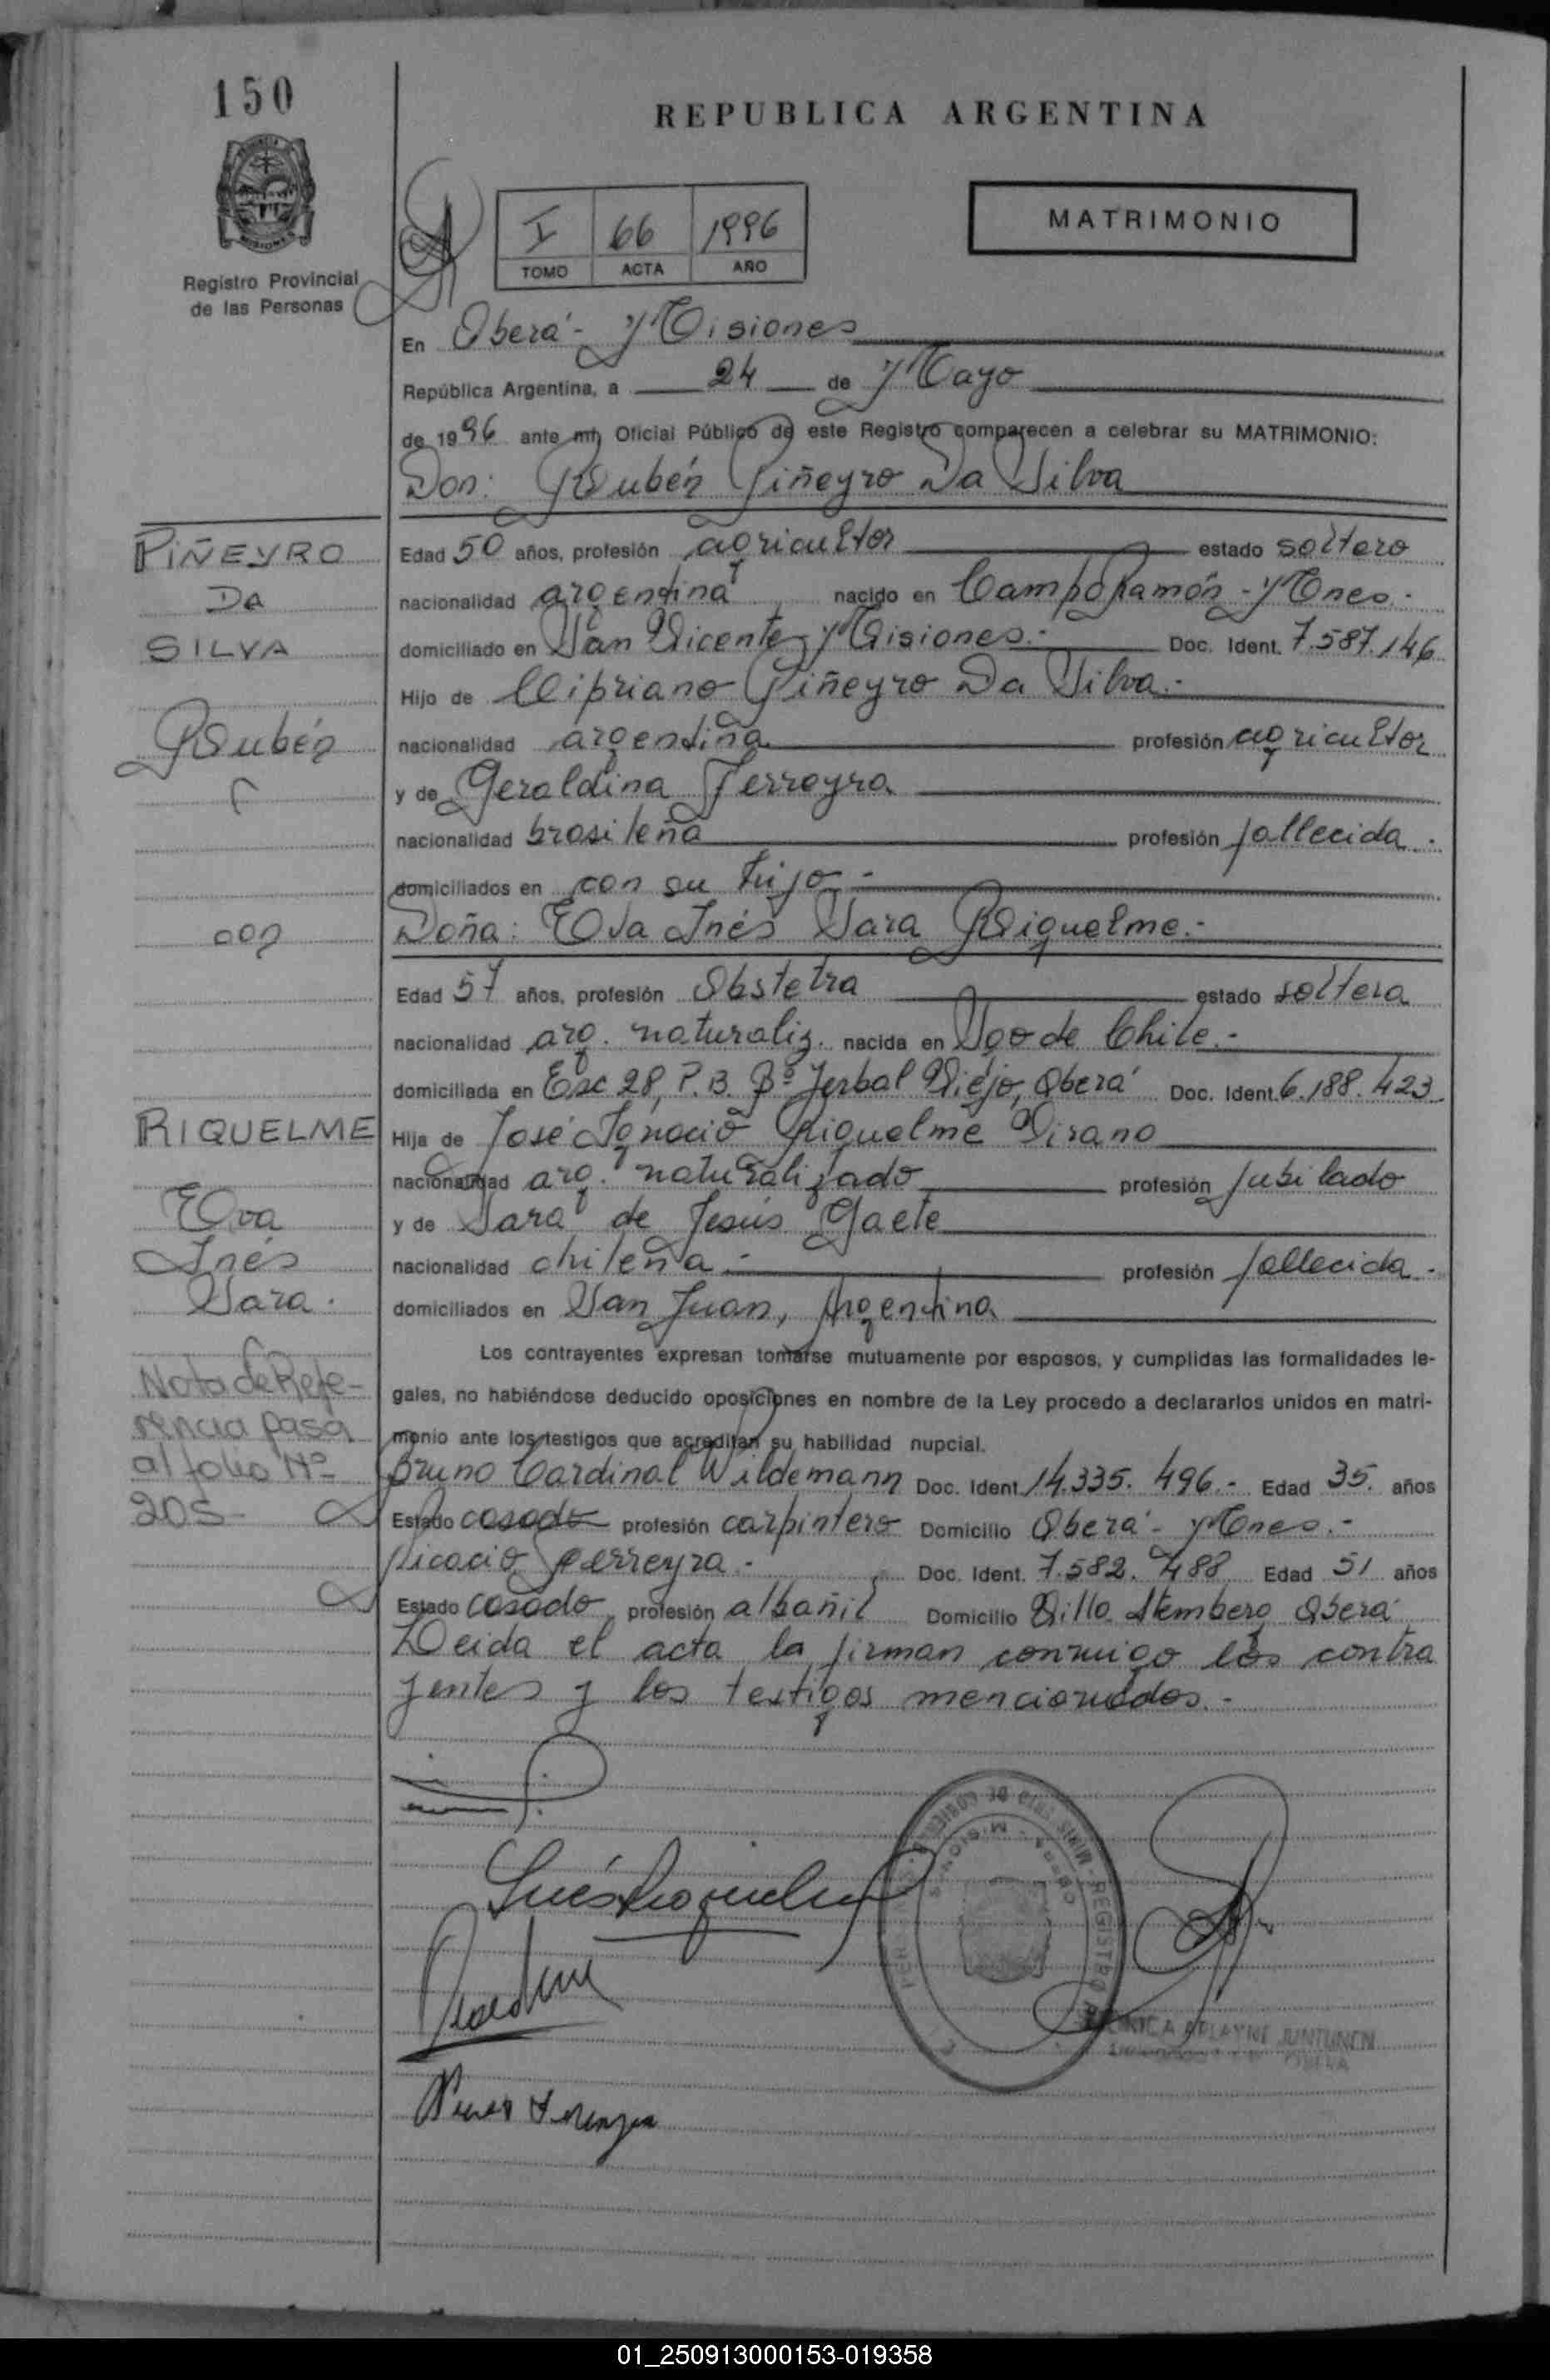 150
REPUBLICA ARGENTINA
Registro Provincial
de las Personas
I 66 1996
TOMO ACTA AÑO
MATRIMONIO
En Oberá - Misiones
República Argentina, a 24 de Mayo
de 1996 ante mí, Oficial Público de este Registro comparecen a celebrar su MATRIMONIO:
Don: Rubén Piñeyro Da Silva
PIÑEYRO
DA
SILVA
Rubén
con
Edad 50 años, profesión agricultor estado soltero
nacionalidad argentina nacido en Campo Ramón - Mnes.-
domiciliado en San Vicente, Misiones.- Doc. Ident. 7.587.146
Hijo de Cipriano Piñeyro Da Silva.-
nacionalidad argentina profesión agricultor
y de Geraldina Ferreyra
nacionalidad brasileña profesión fallecida.
domiciliados en con su hijo.-
Doña: Eva Inés Sara Riquelme.-
Edad 57 años, profesión Obstetra estado soltera
nacionalidad arg. naturaliz. nacida en Sgo de Chile.-
domiciliada en Esc 28, P.B. Bº Yerbal Viejo, Oberá Doc. Ident. 6.188.423
RIQUELME
Eva
Inés
Sara.
Hija de José Ignacio Riquelme Pirano
nacionalidad arg. naturalizado profesión Jubilado
y de Sara de Jesús Gaete
nacionalidad chilena.- profesión fallecida.
domiciliados en San Juan, Argentina
Nota de Refe-
rencia pasa
al folio Nº
205-
Los contrayentes expresan tomarse mutuamente por esposos, y cumplidas las formalidades le-
gales, no habiéndose deducido oposiciones en nombre de la Ley procedo a declararlos unidos en matri-
monio ante los testigos que acreditan su habilidad nupcial.
Bruno Cardinal Wildemann Doc. Ident. 14.335.496.- Edad 35. años
Estado casado profesión carpintero Domicilio Oberá - Mnes.-
Nicacio Ferreyra.- Doc. Ident. 7.582.488 Edad 51 años
Estado casado profesión albañil Domicilio Villa Stemberg Oberá
Leida el acta la firman conmigo los contra
yentes y los testigos mencionados.-
Inés Riquelme
REGISTRO
MONICA JUNTUNEN
01_250913000153-019358